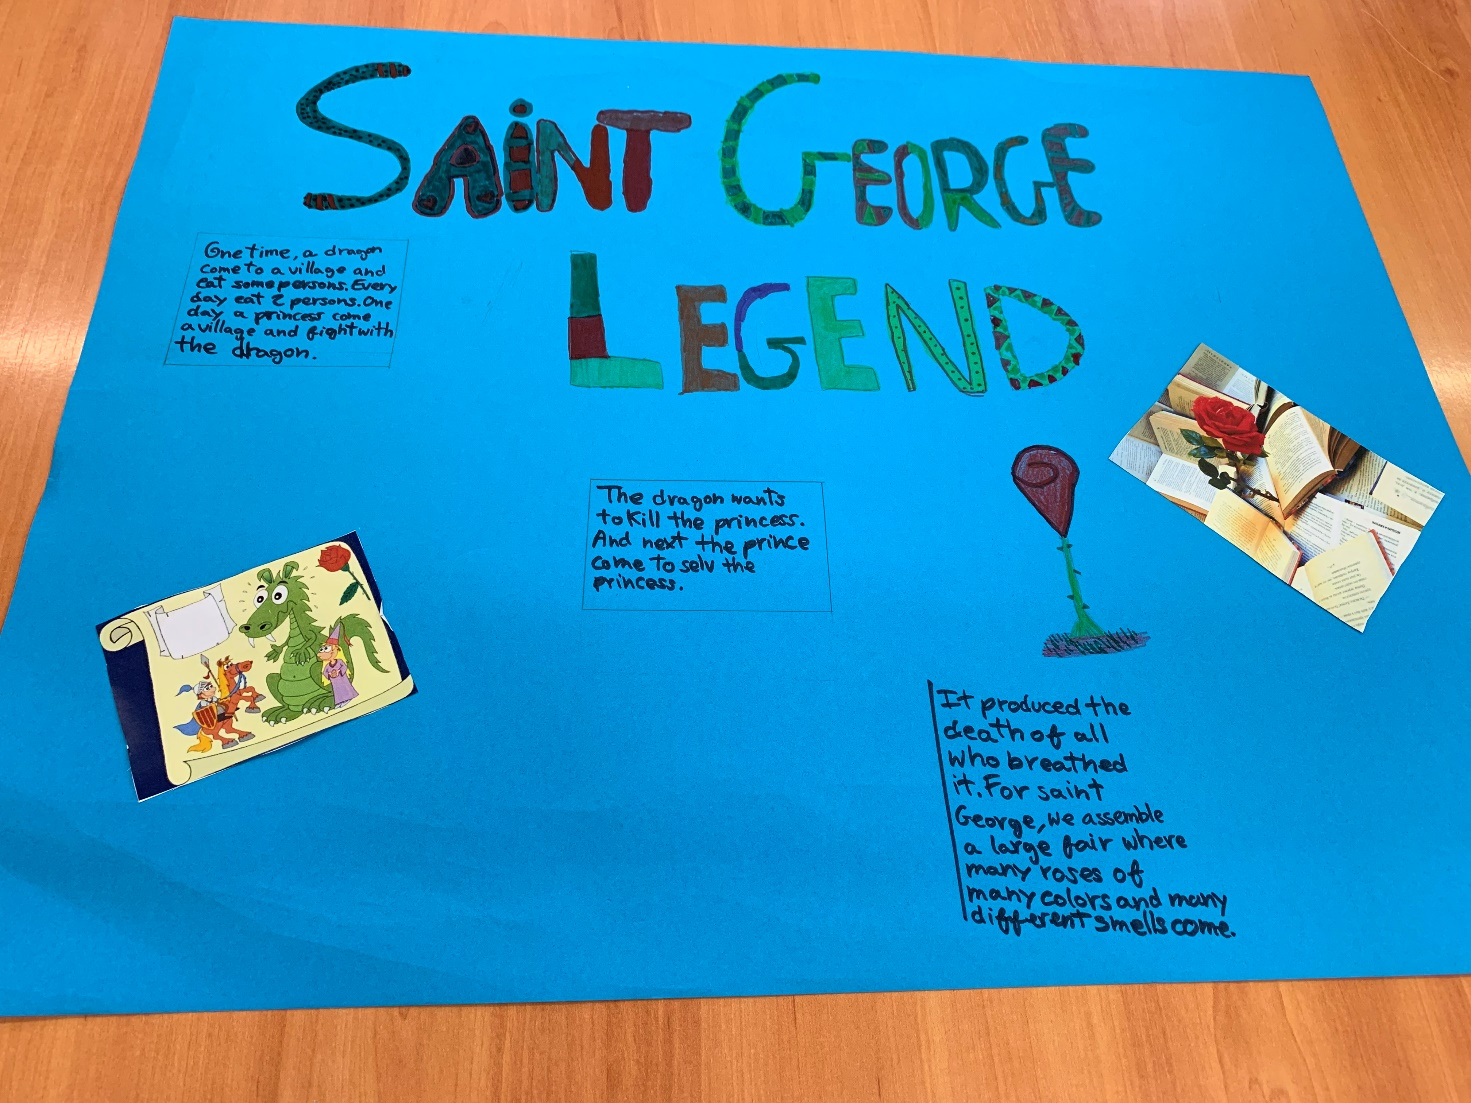 SAINT GEORGE
LEGEND
One time, a dragon
come to a village and
eat some persons. Every
day eat 2 persons. One
day, a princess come
a village and fight with
the dragon.
The dragon wants
to kill the princess.
And next the prince
come to selv the
princess.
It produced the
death of all
who breathed
it. For saint
George, we assemble
a large fair where
many roses of
many colors and many
different smells come.